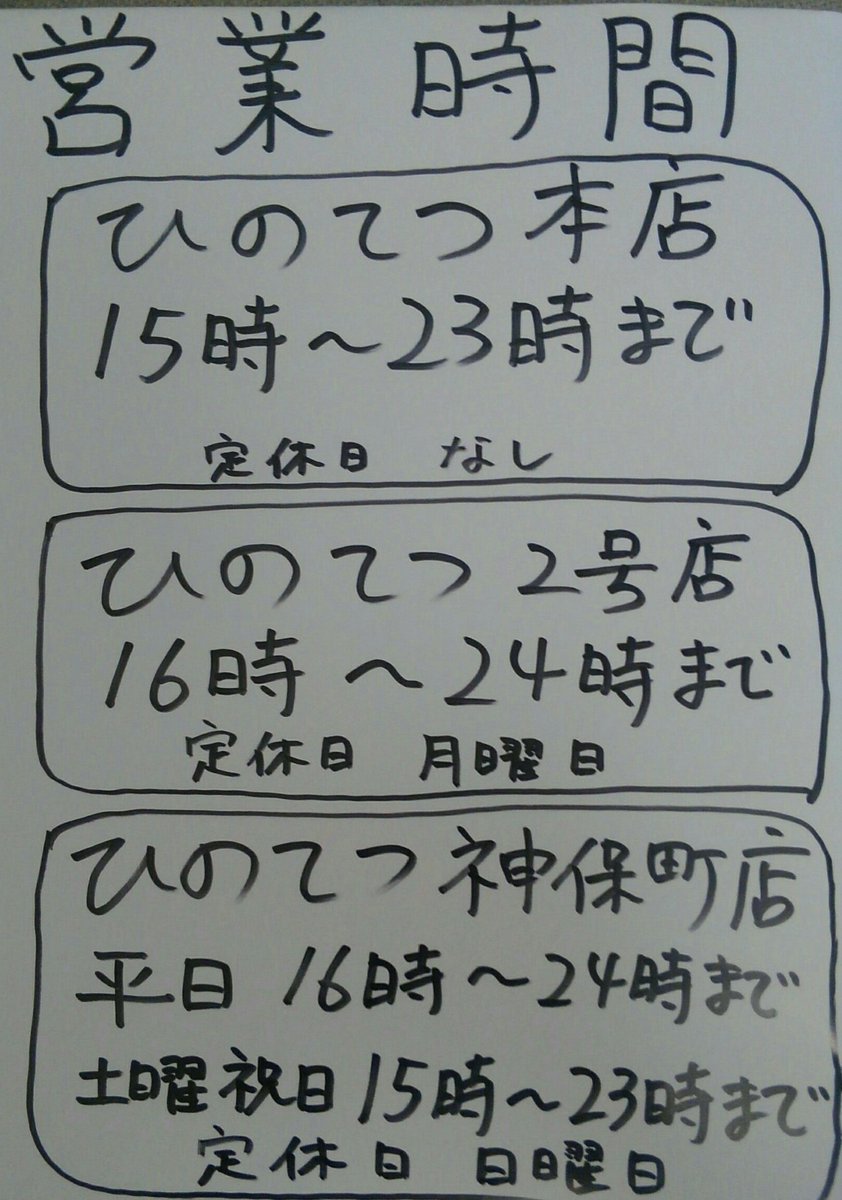 営業時間
ひのてつ本店
15時～23時まで
定休日 なし
ひのてつ 2号店
16時～24時まで
定休日 月曜日
ひのてつ神保町店
平日 16時～24時まで
土曜祝日15時～23時まで
定休日 日曜日